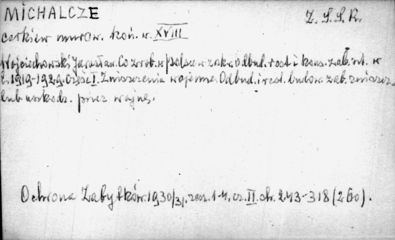 MICHALCZE Z.S.S.R.
cerkiew murow. koń. w. XVIII
Wojciechowski Jarosław. Co zrob. w Polsce w zakr. Odbud. rest. i kons. zab. szt. w
l. 1919-1929. Część I. Zniszczenia wojenne. Odbud. i rest. budow. zab. zniszcz.
lub uszkodz. przez wojnę.
Ochrona Zabytków. 1930/31. zesz. 1-4. cz. II. str. 243-318 (260).